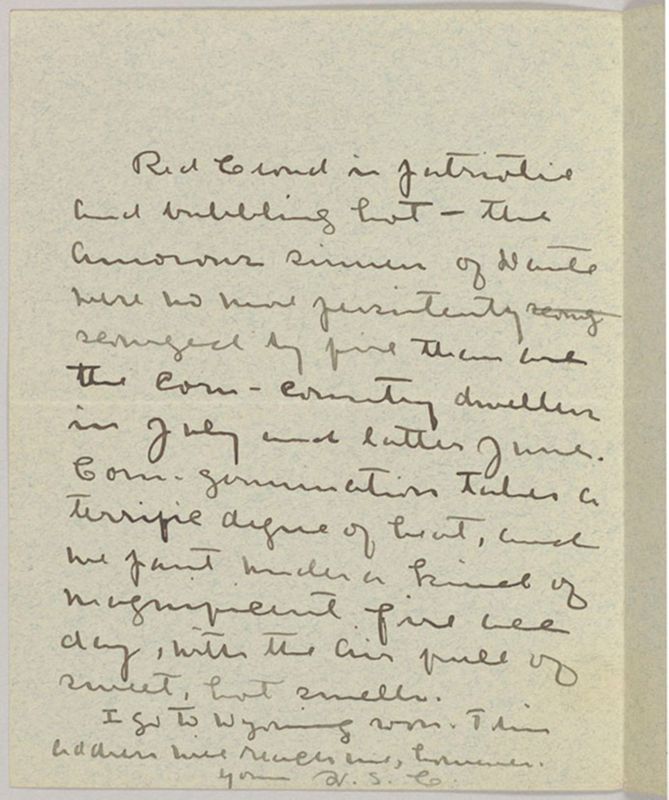 Red Cloud is patriotic
and bubbling hot – the
amorous sinners of Dante
were no more persistently scourg
scourged by fire than are
the corn-country dwellers
in July and latter June.
Corn-germination takes a
terrific degree of heat, and
we pant under a kind of
magnificent fire all
day, with the air full of
sweet, hot smells.
I go to Wyoming soon. This
address will reach me, however.
Yours W. S. C.